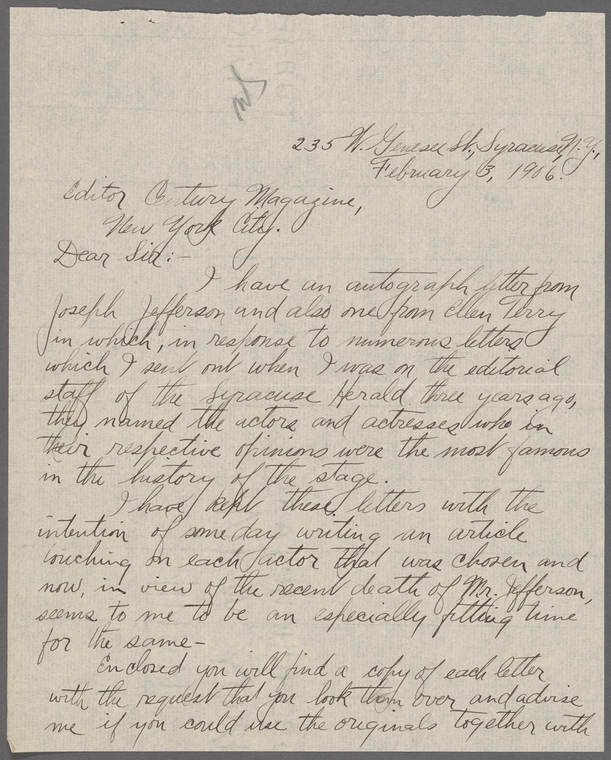 235 W. Genesee St., Syracuse, N.Y.,
February 3, 1906.
Editor Century Magazine,
New York City.
Dear Sir:-
I have an autograph letter from
Joseph Jefferson and also one from Ellen Terry
in which, in response to numerous letters
which I sent out when I was on the editorial
staff of the Syracuse Herald three years ago,
they named the actors and actresses who in
their respective opinions were the most famous
in the history of the stage.
I have kept these letters with the
intention of someday writing an article
touching on each actor that was chosen and
now, in view of the recent death of Mr. Jefferson,
seems to me to be an especially fitting time
for the same-
Enclosed you will find a copy of each letter
with the request that you look them over and advise
me if you could use the originals together with